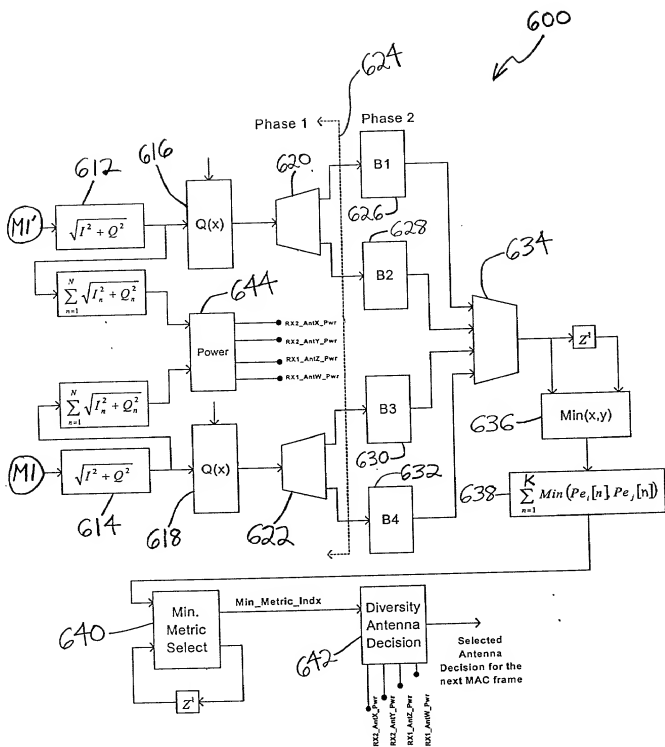 600
624
Phase 1
Phase 2
612
616
620
B1
626
M1'
√I² + Q²
Q(x)
628
B2
634
N
∑ √Iₙ² + Qₙ²
n=1
644
Power
RX2_AntX_Pwr
RX2_AntY_Pwr
RX1_AntZ_Pwr
RX1_AntW_Pwr
Z¹
N
∑ √Iₙ² + Qₙ²
n=1
B3
636
Min(x,y)
630
M1
√I² + Q²
Q(x)
632
B4
638
K
∑ Min(Peᵢ[n],Peⱼ[n])
n=1
614
618
622
640
Min.
Metric
Select
Min_Metric_Indx
Diversity
Antenna
Decision
642
Selected
Antenna
Decision for the
next MAC frame
Z¹
RX2_AntX_Pwr
RX2_AntY_Pwr
RX1_AntZ_Pwr
RX1_AntW_Pwr